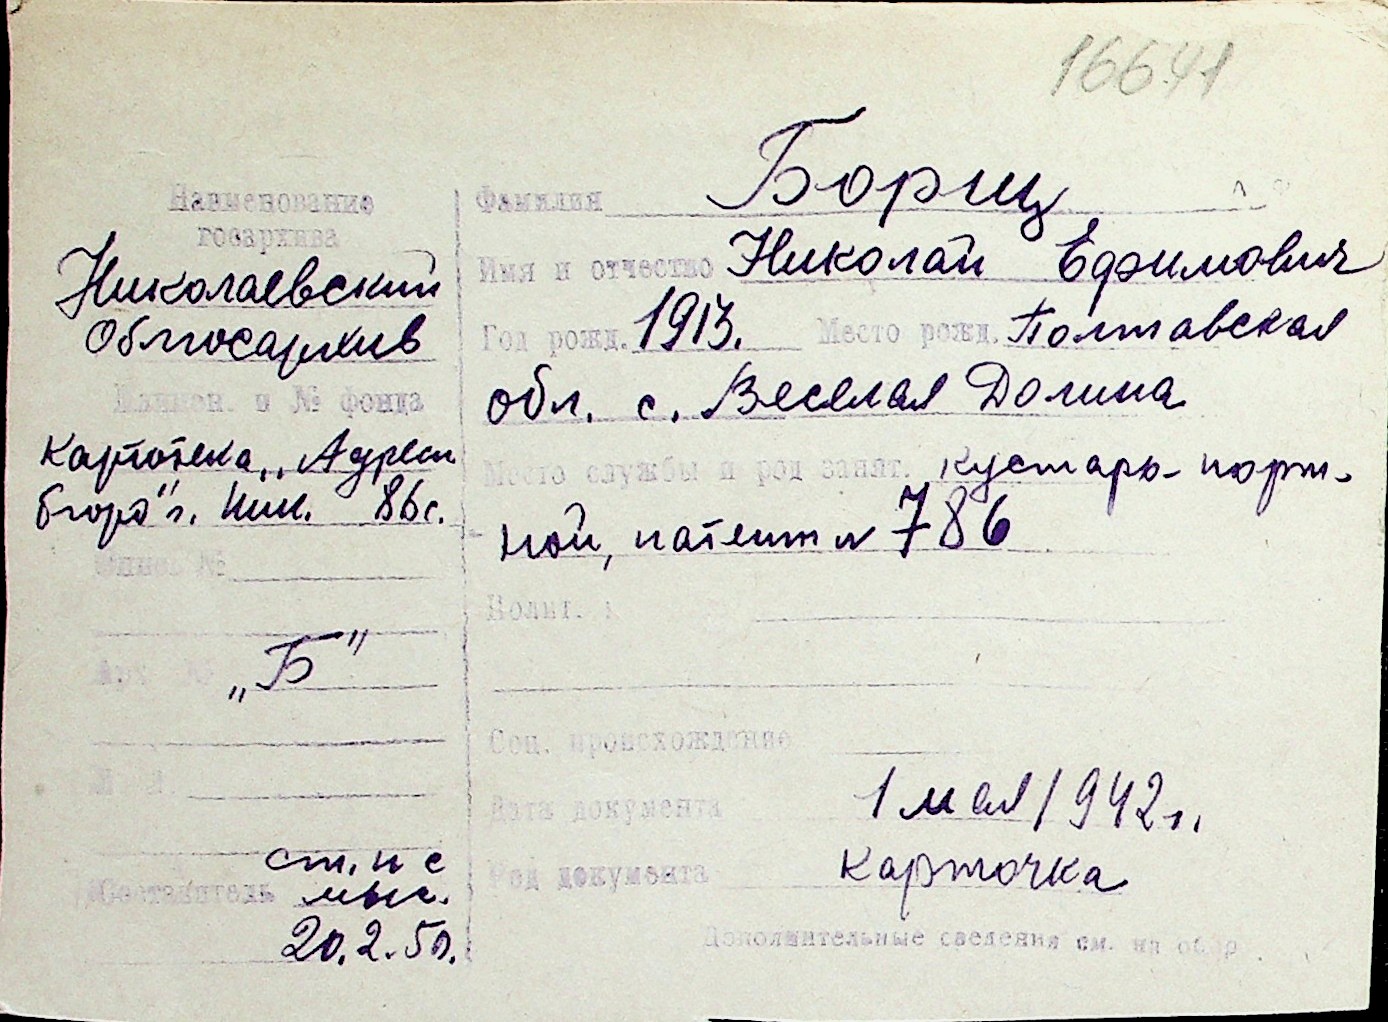 16641
Наименование
госархива
Николаевский
Облгосархив
Наимен. и № фонда
Картотека „Адресн
бюро" г. Ник. 86с.
Опись №
Арх. №
„Б"
Составитель
ст. н с
20.2.50.
Фамилия Борщ
Имя и отчество Николай Ефимович
Год рожд. 1913. Место рожд. Полтавская
обл. с. Веселая Долина
Место службы и род занят. кустарь-порт-
ной, патент № 786
Соц. происхождение
Дата документа 1 мая 1942 г.
Род документа карточка
Дополнительные сведения см. на обор